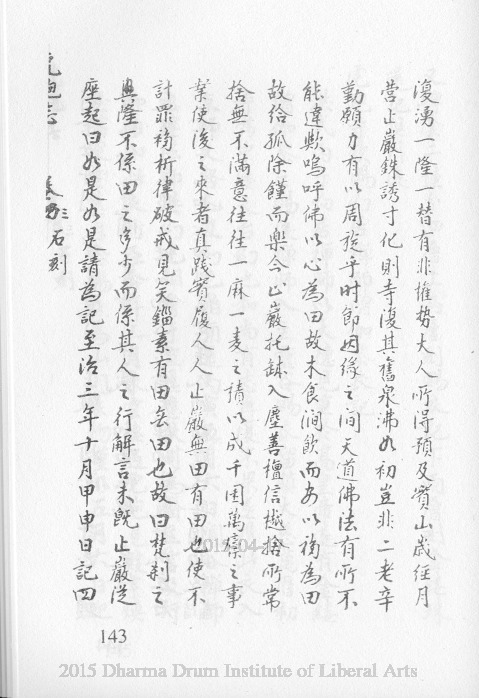 復湧一隆一替有非權勢大人所得預及寶山歲經月
營止巖銖誘寸化則寺復其舊泉沸如初豈非二老辛
勤願力有以周旋乎时節因緣之间天道佛法有所不
能違歟嗚呼佛以心為田故木食涧飲而安以福為田
故给孤除饉而樂今止巖托缽入塵善檀信越捨所常
捨無不滿意往往一麻一麦之積以成千囷萬之事
業使後之來者真践實履人人止巖無田有田也使不
計罪福析律破戒見笑錙素有田無田也故曰梵刹之
興隆不係田之多少而係其人之行解言未既止巖從
座起曰如是如是請為記至治三年十月甲申日記四
志 卷三 石刻
143
2015 Dharma Drum Institute of Liberal Arts